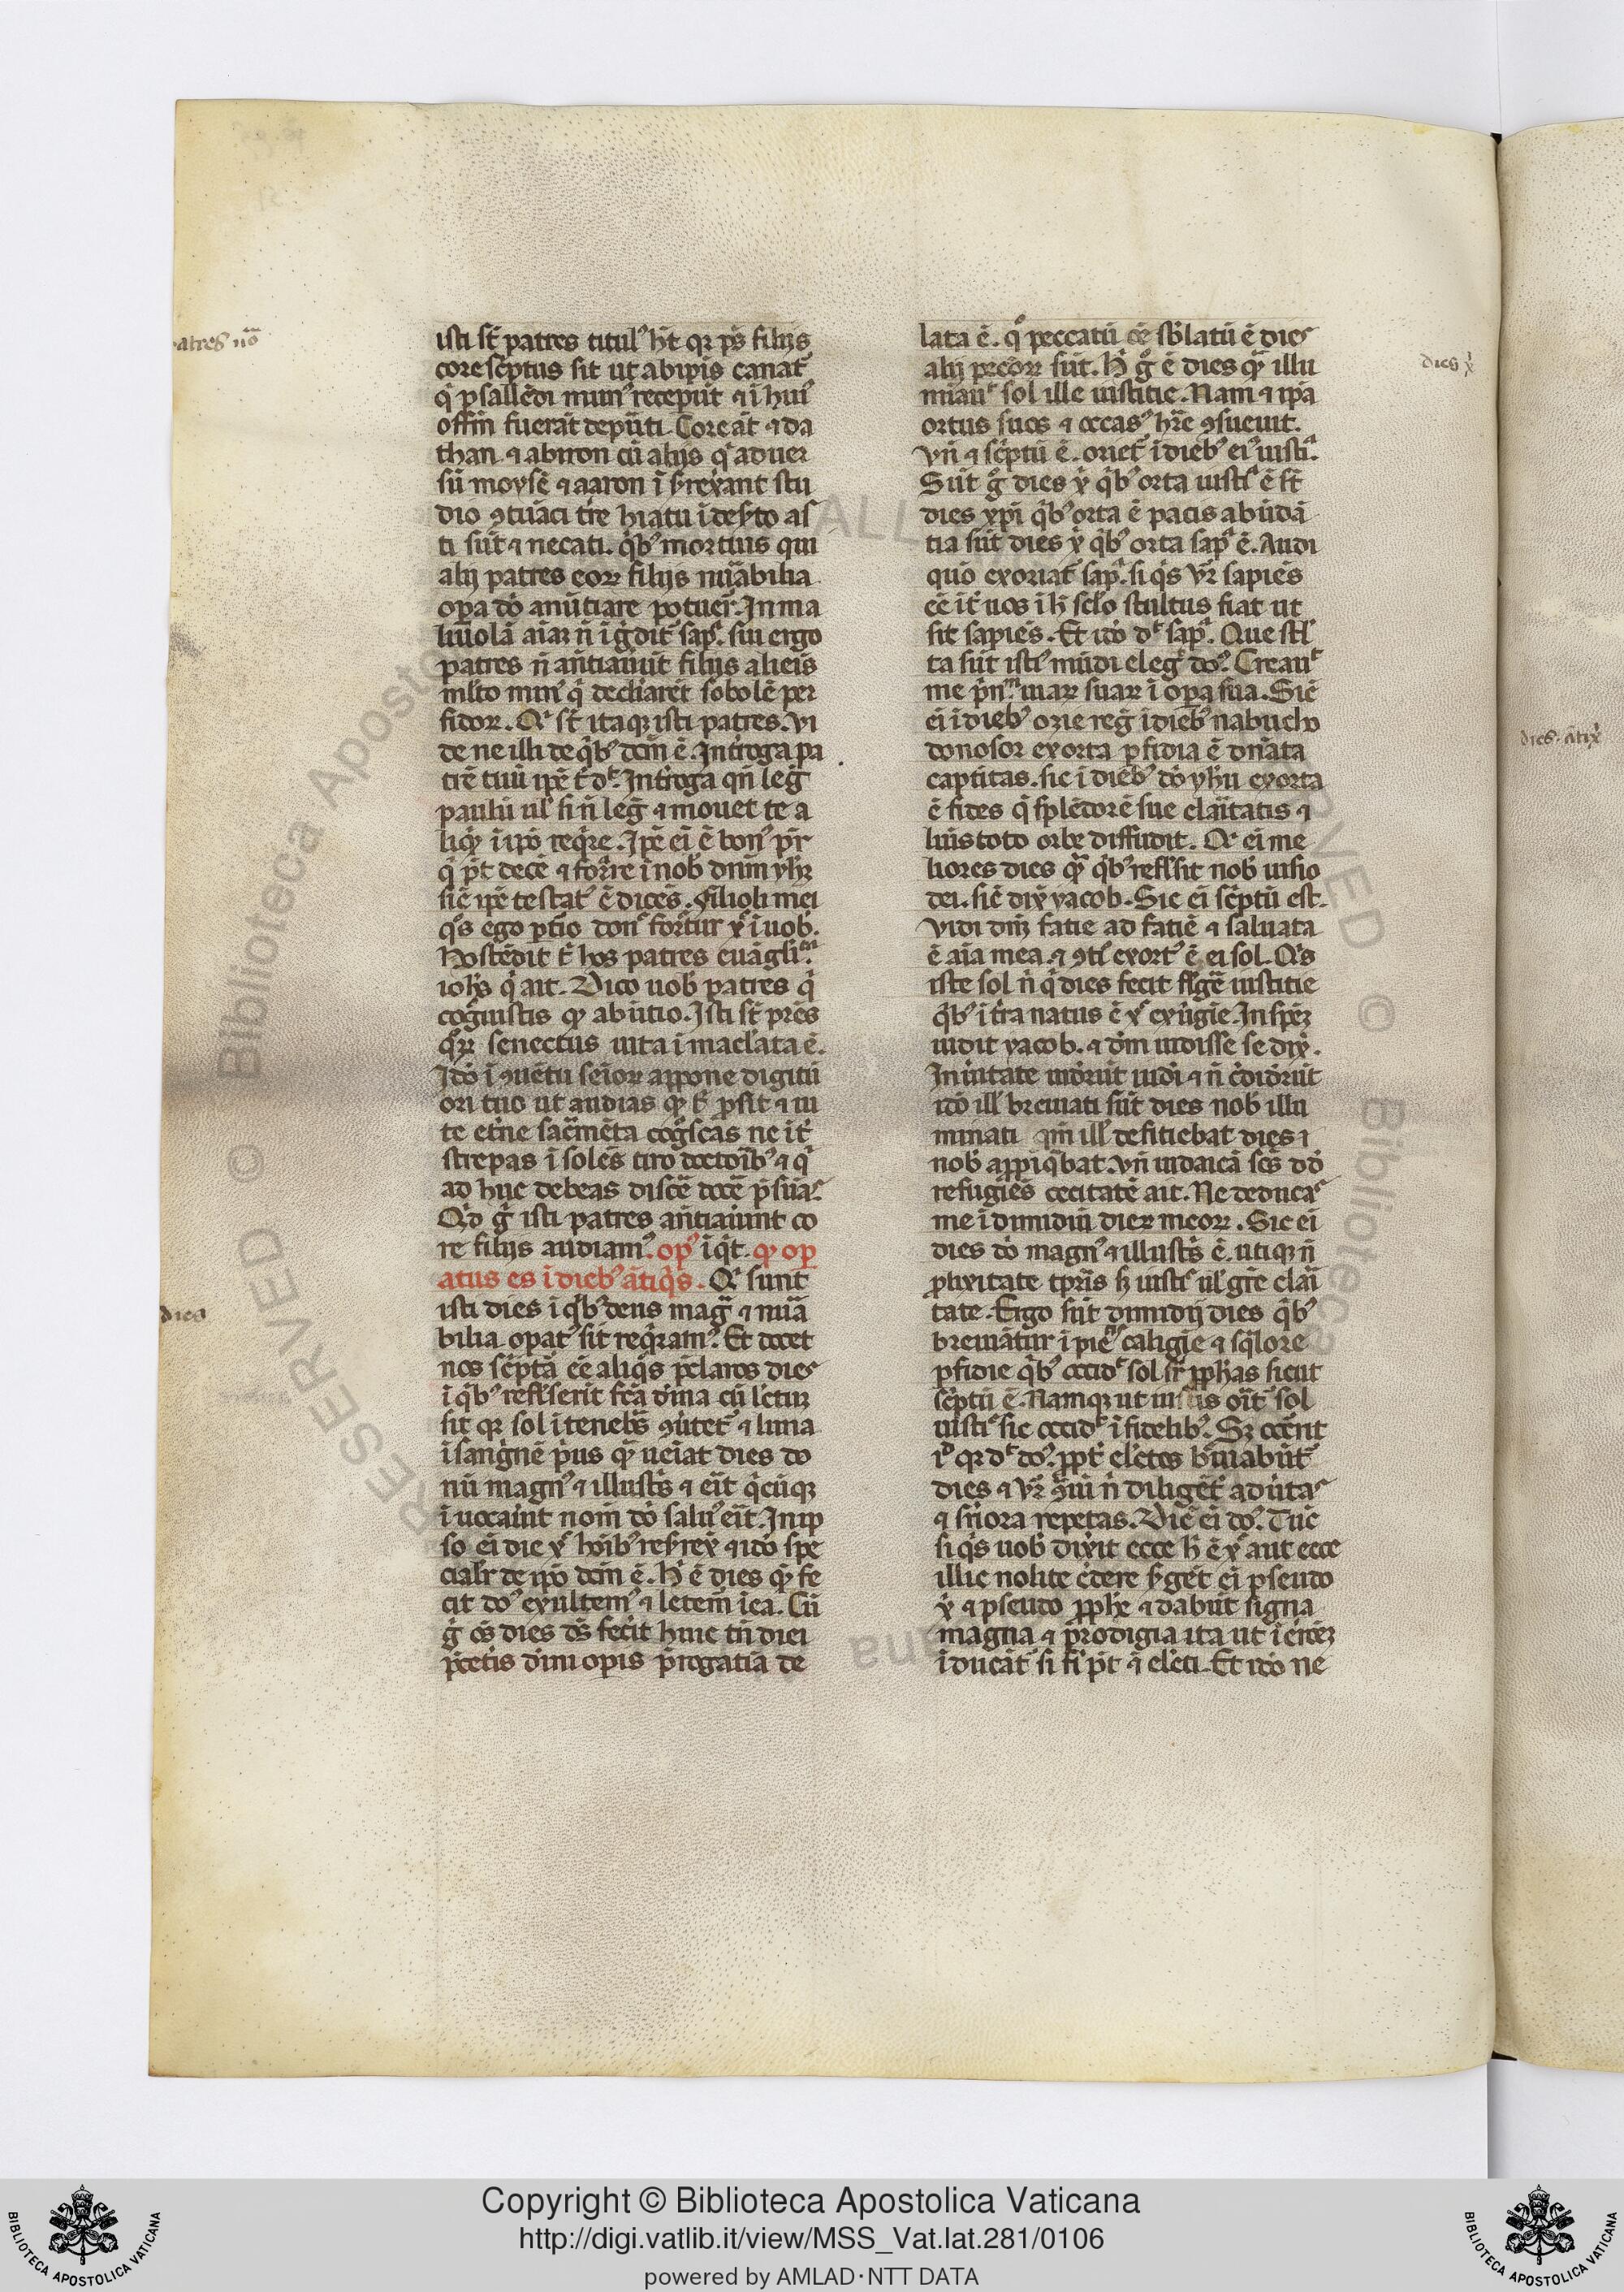 patres nō
isti st̄ patres titul᾿ h̄t qꝛ ps̄ filijs
core sc̄ptus sit ut ab ipis canat᾿
q̇ psallēdi mun᾿ recepūt ⁊ ī hui᾿
offm̄ fuerāt depūti. Core āt ⁊ da
than ⁊ abiron cū alijs q̇ aduer
sū moysē ⁊ aaron ī s᾿rexant stu
dio ꝯtuāci tr̄e hiatu
ti sūt ⁊ necati. q̇b᾿ mortuis qui
alij patres eoꝝ filijs mirabilia
oꝑa dō anūtiare potuer̄. In ma
liuolā aīaꝫ n̄ īgdit᾿ sap̄. siu ergo
patres n̄ an̄tiauūt filijs alicis
ml̄to min᾿ q̇ declarēt sobolē ꝑ
fidoꝝ. Q̇ st̄ itaqꝫ isti patres. Vi
de ne illi de q̇b᾿ dc̄m ē. Int᾿roga pa
trē tuū
paulū ul᾿ si n̄ leḡ ⁊ mouet te a
liq̇ ī ip̄o req̇re. Ip̄e ei ē bon᾿ pr̄
q̇ p̄t docē ⁊ for̄re ī nob̄ dn̄m yh̄ꝫ
sic̄ ip̄e testat᾿ ē dicēs. filioli mei
q᾿s ego
Hostēdit t̄ hos patres euāgli
ioh̄s q̇ ait. Dico uob̄ patres q̇
cogūistis ꝙ ab ūtio. Isti st̄ pr̄es
q̇ꝝ senectus uita īmac̄lata ē.
Idō ī ꝯuētu seīoꝝ appone digitū
ori tuo ut audias
te et̄ne sac̄mēta cog̊scas ne
strepas ī solēs tiro doctoib᾿ ⁊ q̇
ad huc debeas discē docē p̄sūa᾿.
Q̇d g̊ isti patres an̄tiaiunt co
re filijs audiam᾿. op᾿ īqt. ꝙ oꝑ
atus es ī dieb᾿ ātiq̇s. Q̇ sunt
dies
isti dies ī q̇b᾿ deus mag̊ ⁊ mirā
bilia oꝑat᾿ sit req̇ram᾿. Et docet
nos sc̄pta ēē aliq̇s p̄claros dies
ī q̇b᾿ reful̄serit
sit qꝛ sol ī tenebs̄ ꝯūtet᾿ ⁊ luna
ī sangnē p̄us ꝙ ueīat dies do
nū magn᾿ ⁊ illustr̄s ⁊ eīt q̇cūqꝫ
īuocaīut nom̄ dō salu᾿ eīt. In ip
so ei die xp̄ hoīb᾿ res᾿rex̄ ⁊ idō spe
cialr̄ de ip̄o dc̄m ē. H̄ ē dies ꝙ fe
cit do᾿ exultem᾿ ⁊ letem̄ ī ea. Cū
g̊ os̄ dies ds̄ fecit huic tn̄ diei
p̄cetis diuī oꝑis p̄rogatīa de
lata ē. q᾿ peccatū oē sb̄latū ē dies
dies x̄
alij p̄coꝝ sūt. H̄ g̊ ē dies ꝙ illu
minau᾿ sol ille iustitie. Nam ⁊ ip̄a
ortus suos ⁊ occas᾿ hr̄e ꝯsueuit.
Vn̄ ⁊ sc̄ptū ē. oriet᾿ ī dieb᾿ ei᾿ iusti᾿.
Sūt g̊ dies x̄ q̇b᾿ orta iusti᾿ ē st̄
dies xp̄i q̇b᾿ orta ē pacis abūdā
tia sūt dies x̄ q̇b᾿ orta sap᾿ ē. Audi
quō exoriat᾿ sap᾿. si q̇s vr̄ sapiēs
ēē it᾿ uos ī h̄ sclo stultus fiat ut
sit sapiēs. Et idō d᾿t sap᾿. Que stl᾿
ta sūt ist᾿ mūdi eleg̊ do᾿. Creau᾿t
me p̄n uiaꝝ suaꝝ ī oꝑa sua. Sic̄
ei ī dieb᾿ ozie reg̊ ī dieb᾿ nabucho
donosor exorta ꝑfidia ē
captitas. sic ī dieb᾿ dō yh̄u exorta
ē fides q̇ splēdorē sue claītatis ⁊
luīs toto orbe diffudit. Q̇ ei me
liores dies ꝙ q̇b᾿ reful̄sit nob̄ uisio
dei. sic̄ dix̄ yacob. Sic ei sc̄ptū est.
Vidi dn̄ꝫ facie ad faciē ⁊ saluata
ē aīa mea. ⁊ ꝯti᾿ exort᾿ ē ei sol. Q̇s
iste sol n̄ q̇ dies fecit fl᾿gē iustitie
q̇b᾿ ī t᾿ra natus ē x̄ ex ūgīe. In spēꝫ
uidit yacob. ⁊ dm̄ uidisse se dix̄.
In ūitate uiderūt iudi ⁊ n̄ c̄diderūt
idō ill᾿ breuiati sūt dies nob̄ illu
minati qm̄ ill᾿ deficiebat dies ⁊
nob̄ appiq̇bat. Vn̄ iudaicā scs̄ dd̄
refugiēs cecitatē ait. Ne deducas
me ī dimidiū dieꝝ meoꝝ. Sic ei
dies dō magn᾿ ⁊ illustr̄s ē. utiqꝫ n̄
ꝓlixitate tꝑis sꝫ iusti᾿ ul᾿ gr̄e claī
tate. Ergo sūt dimidij dies q̇b᾿
breuiātur caligīe ⁊ sq̇lore
ꝑfidie q̇b᾿ occid᾿ sol sr̄ ꝓphas sicut
sc̄ptū ē. Namqꝫ ut iustis orit᾿ sol
iusti᾿ sic occid᾿ īfidelib᾿. Sꝫ
qꝛ d᾿t do᾿. ꝓpt᾿ el᾿ctos b᾿uiabūt᾿
dies ⁊ ad uitā
⁊ repetas. Dic̄ ei do᾿. Tūc
si q̇s uob̄ dixit ecce h̄ ē x̄ aut ecce
illic nolite c̄dere s᾿gēt ei pseudo
x̄ ⁊ pseudo ꝓph̄e ⁊ dabūt signa
magna ⁊ prodigia ita ut ī erroꝫ
īducāt si fi᾿ p̄t ⁊ el᾿cti. Et idō ne
dies. ātiq̇
Copyright © Biblioteca Apostolica Vaticana
http://digi.vatlib.it/view/MSS_Vat.lat.281/0106
powered by AMLAD·NTT DATA
BIBLIOTECA APOSTOLICA VATICANA
BIBLIOTECA APOSTOLICA VATICANA